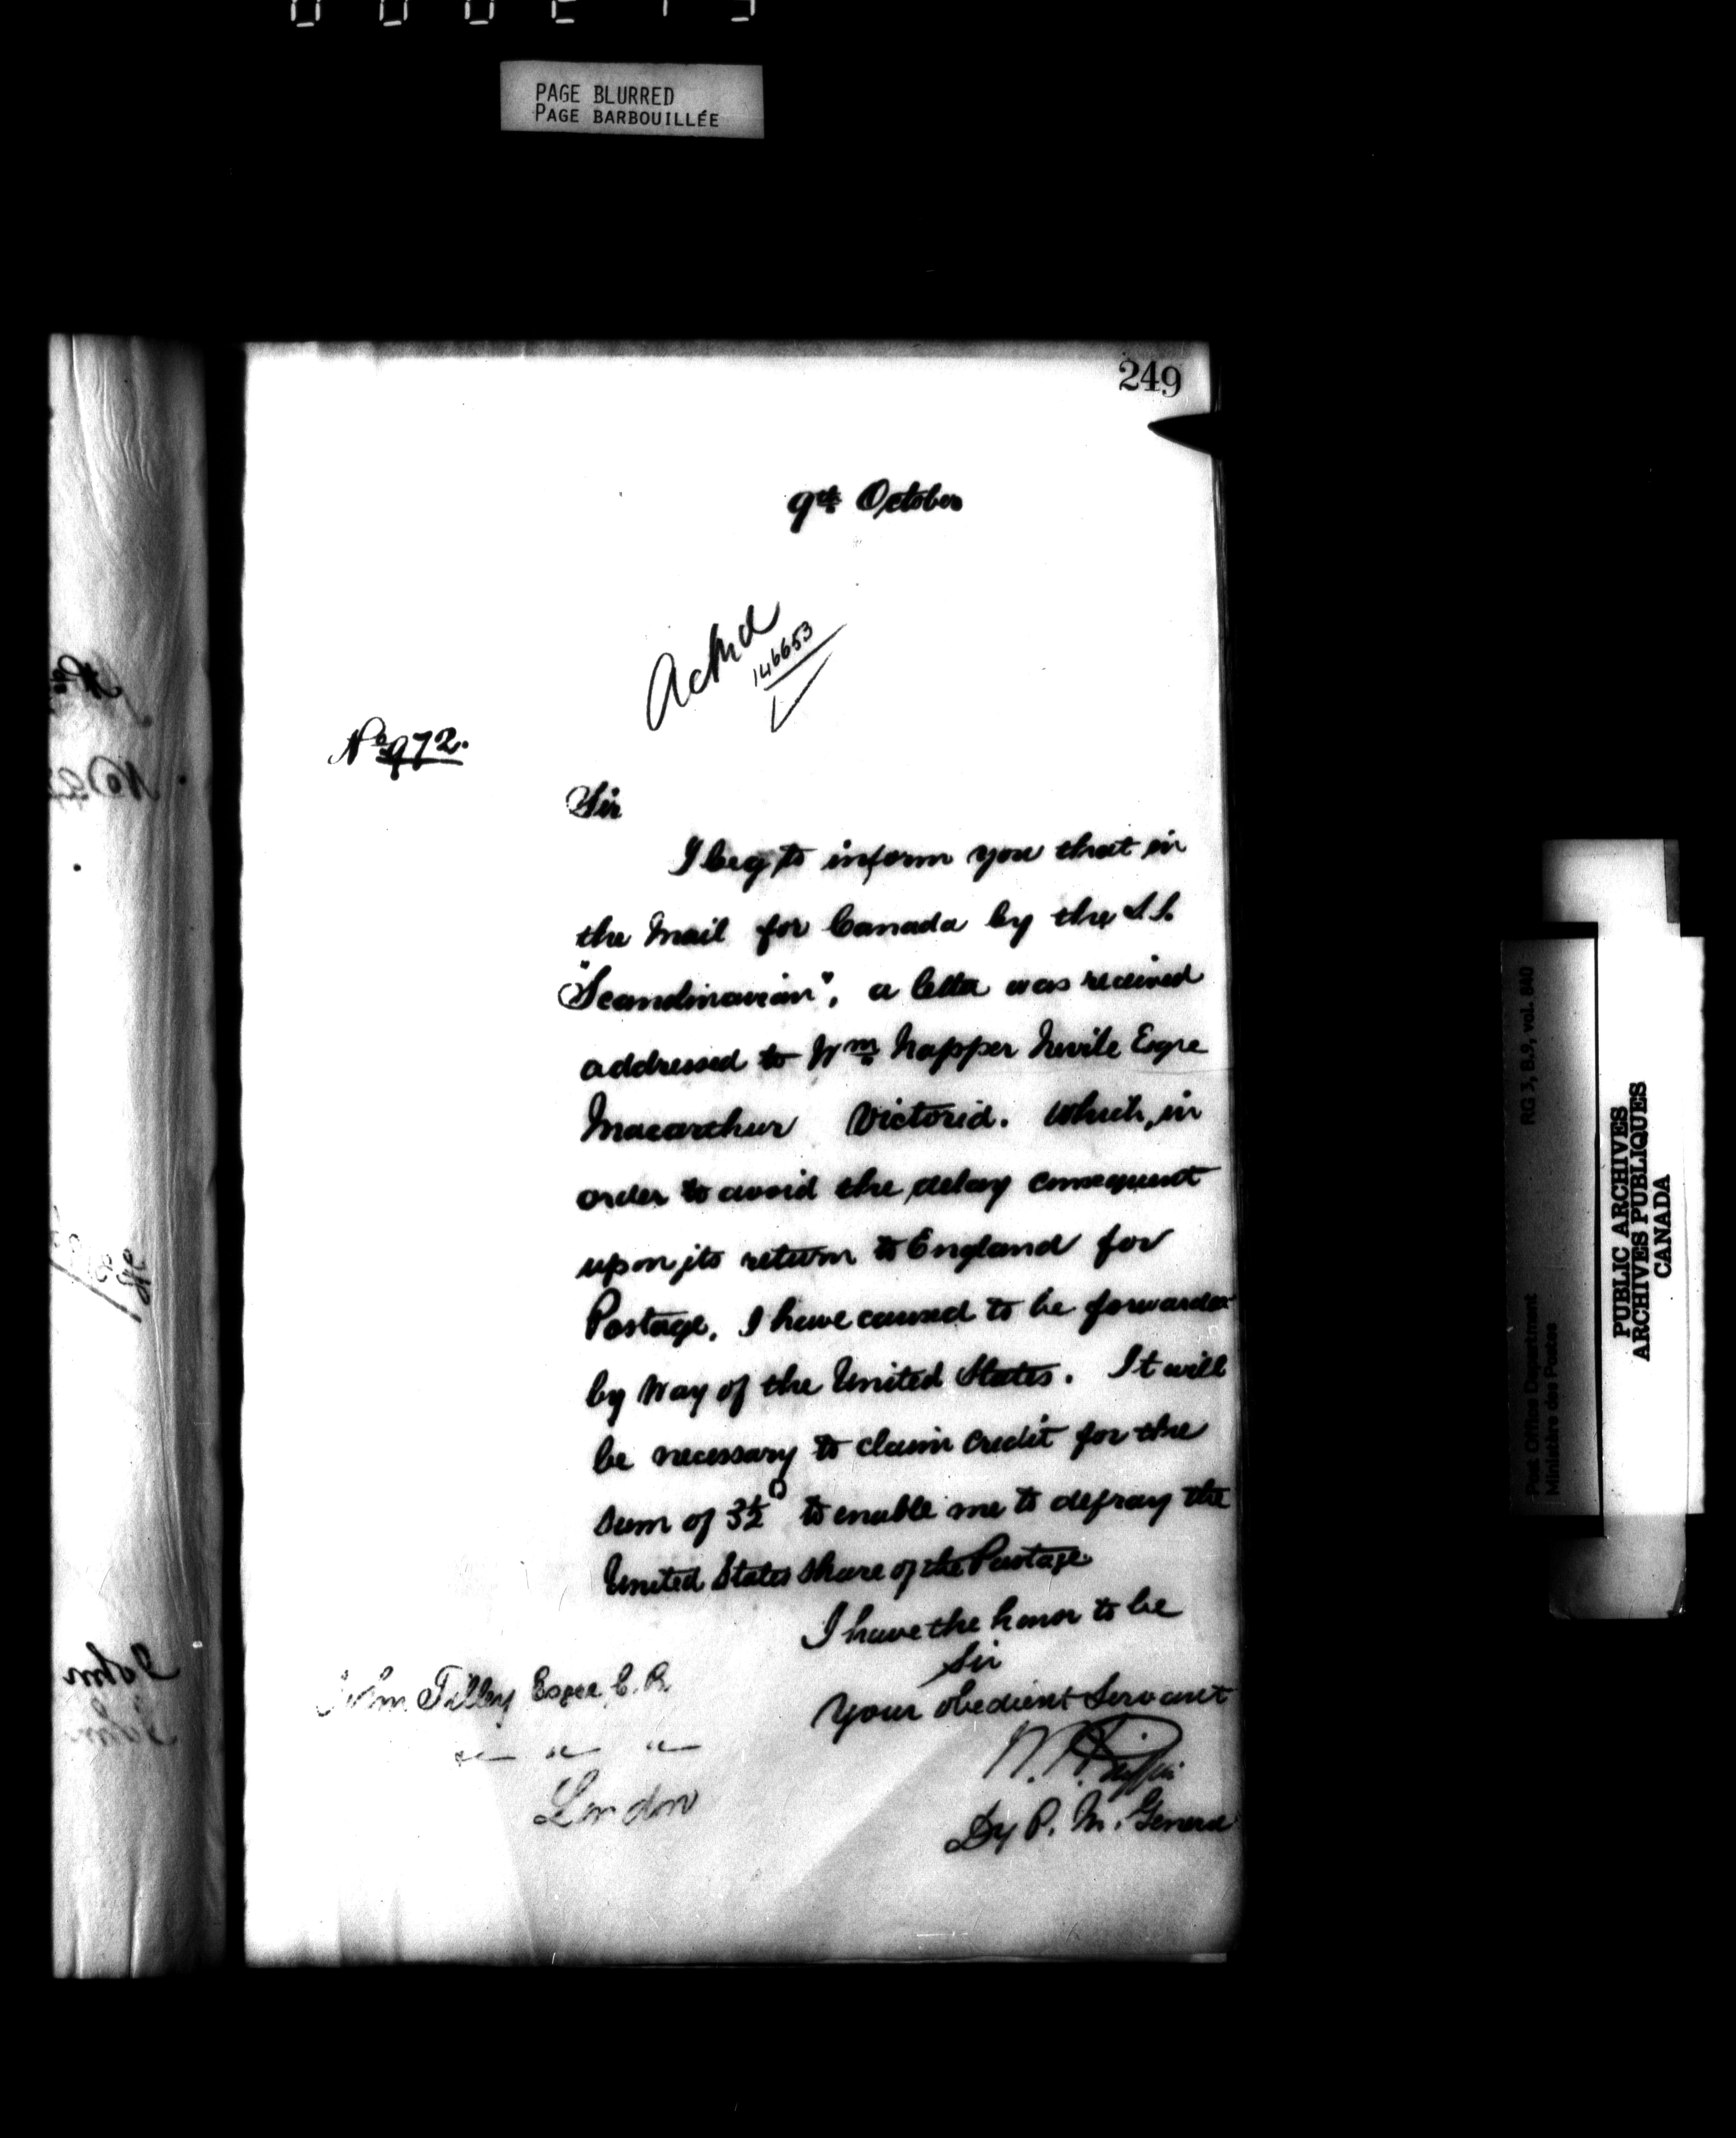 PAGE BLURRED
PAGE BARBOUILLÉE
249
9th October
Ackd
146653
No 972.
Sir
I beg to inform you that in
the Mail for Canada by the S.S.
"Scandinavian", a letter was received
addressed to Wm Napper Nevile Esqre
Macarthur Victoria. Which, in
order to avoid the delay consequent
upon its return to England for
Postage, I have caused to be forwarded
by way of the United States. It will
be necessary to claim credit for the
sum of 3½D to enable me to defray the
United States share of the Postage.
I have the honor to be
Sir
Your obedient Servant
W. H. Griffin
Dy P. M. General
John Tilley Esqre C.B.
" " "
London
RG 3, B.9, vol. 840
Post Office Department
Ministère des Postes
PUBLIC ARCHIVES
ARCHIVES PUBLIQUES
CANADA